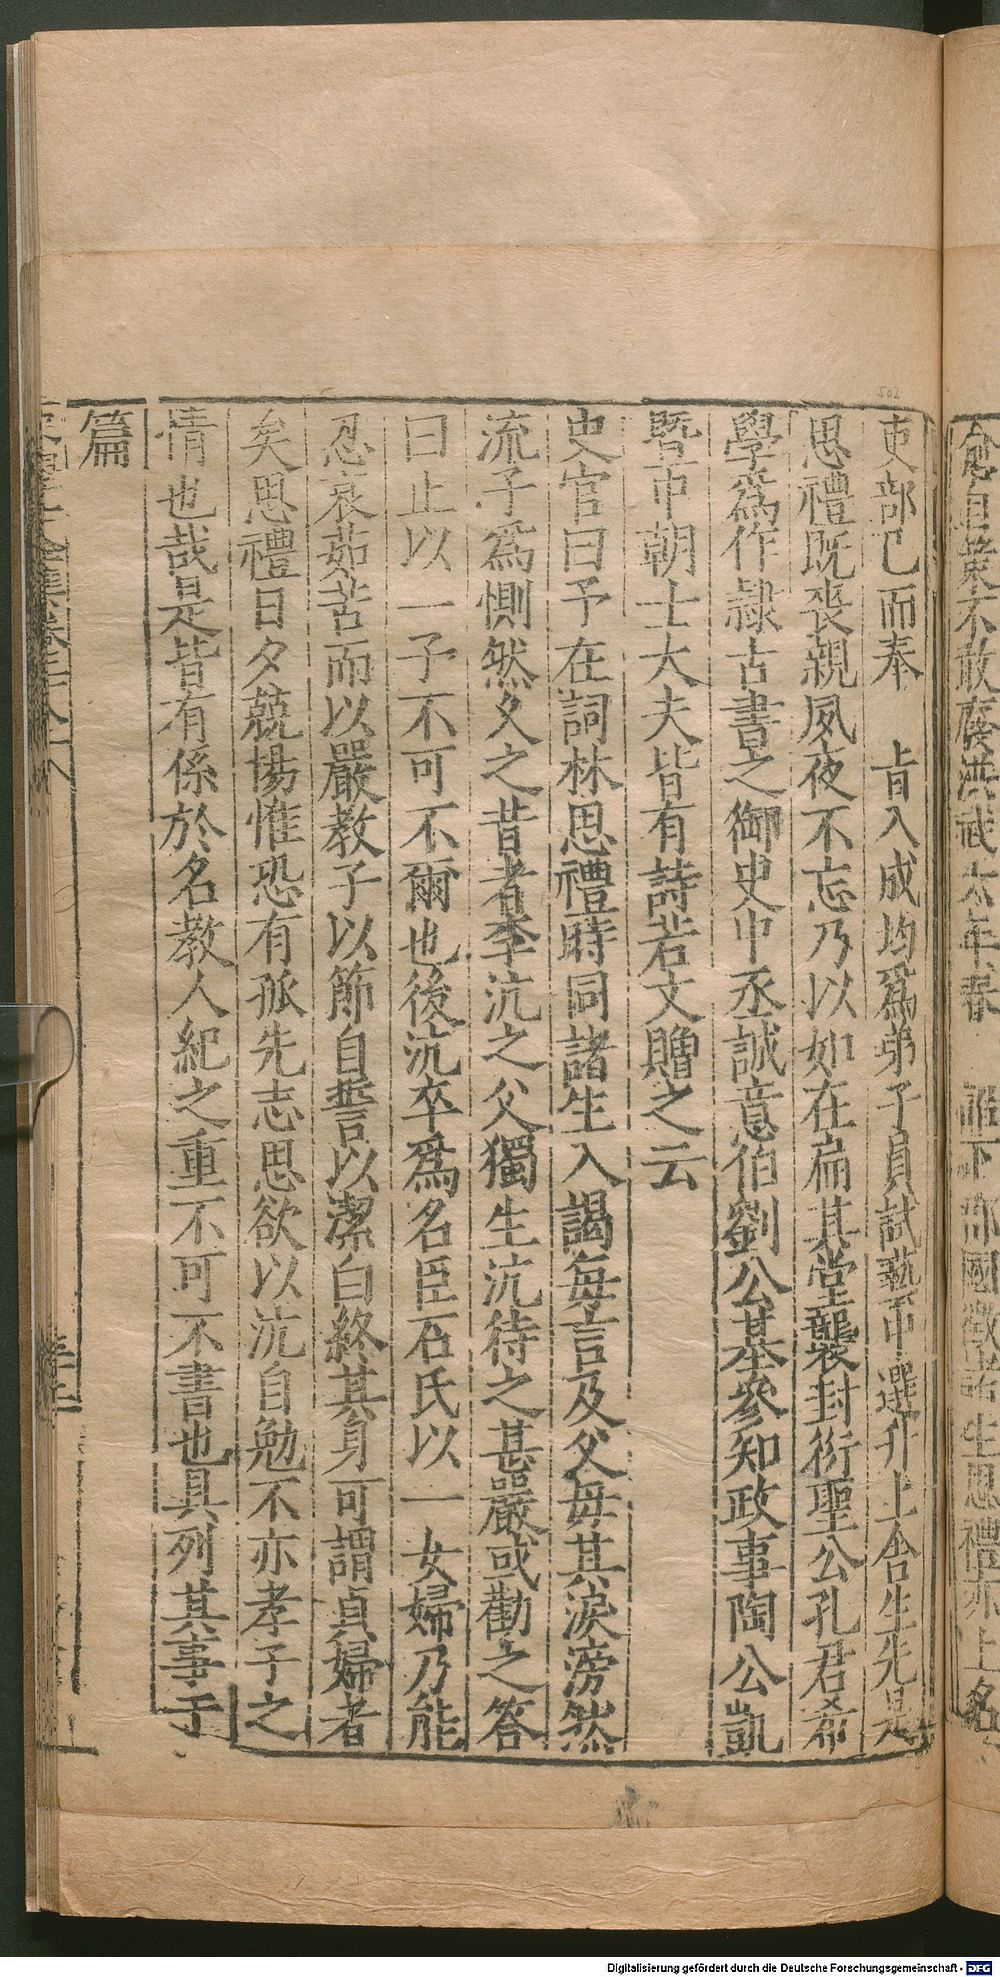 吏部已而奉 旨入成均爲弟子員試藝中選升上舍生先是
思禮既喪親夙夜不忘乃以如在扁其堂襲封衍聖公孔君希
學爲作隷古書之御史中丞誠意伯劉公基參知政事陶公凱
曁中朝士大夫皆有詩若文贈之云
史官曰予在詞林思禮時同諸生入謁每言及父母其淚滂然
流予爲惻然久之昔者李沆之父獨生沆待之甚嚴或勸之答
曰止以一子不可不爾也後沆卒爲名臣石氏以一女婦乃能
忍哀茹苦而以嚴教子以節自誓以潔白終其身可謂貞婦者
矣思禮日夕兢惕惟恐有孤先志思欲以沆自勉不亦孝子之
情也哉是皆有係於名教人紀之重不可不書也具列其事于
篇
502
Digitalisierung gefördert durch die Deutsche Forschungsgemeinschaft - DFG